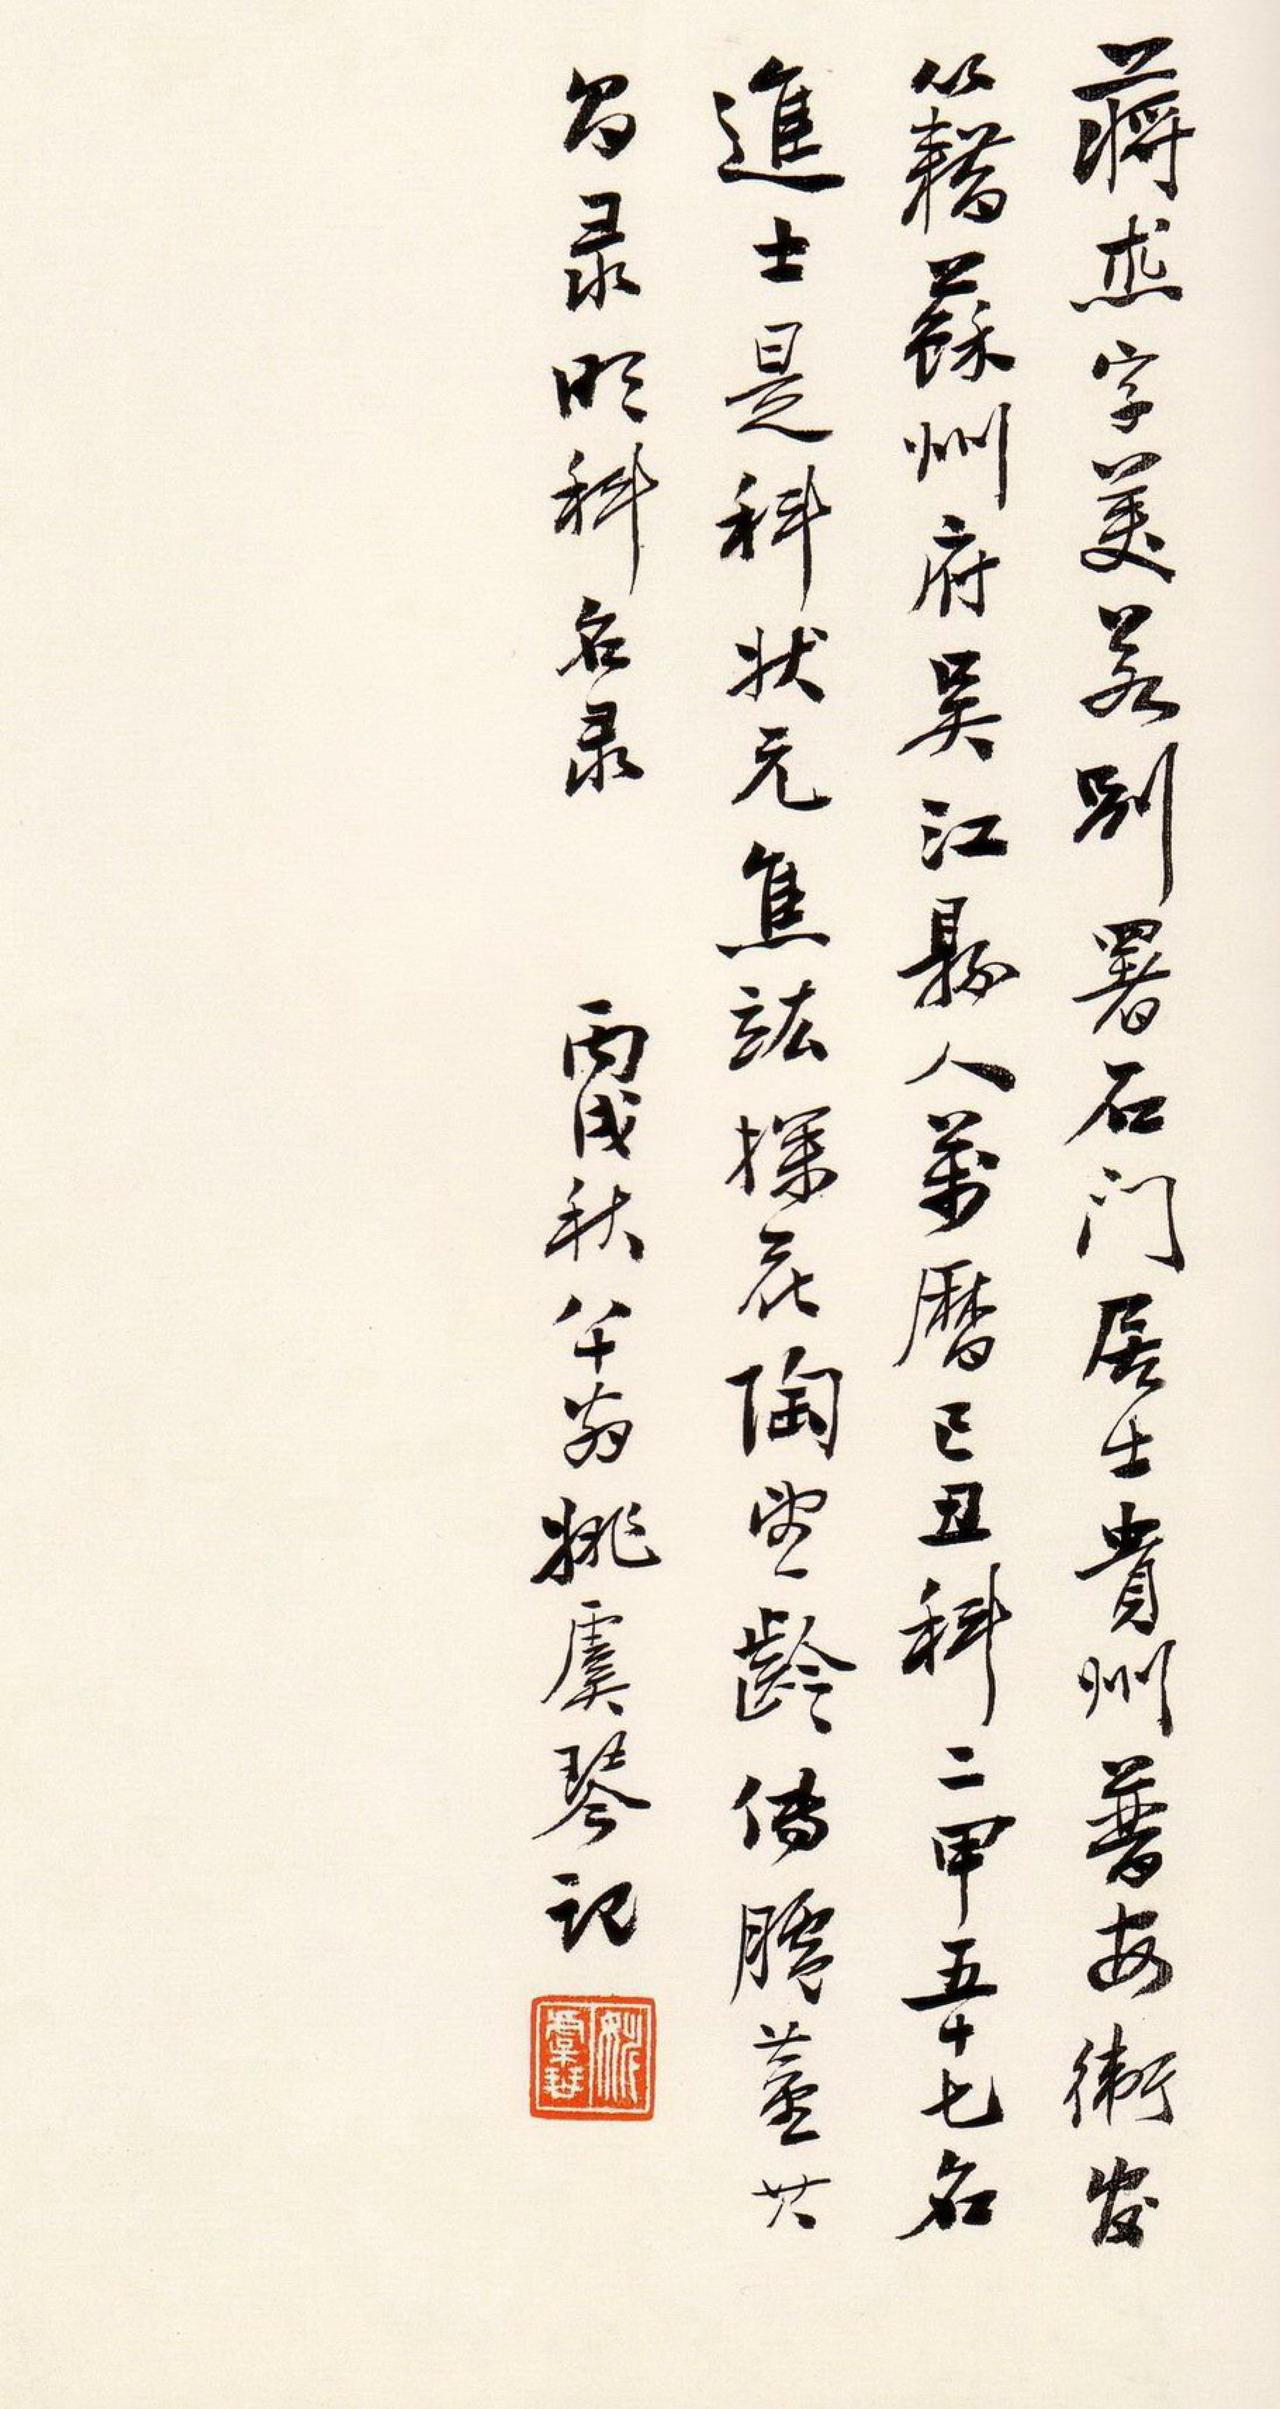 蔣杰字美若别署石门居士貴州普安衛
籍蘇州府吴江縣人萬曆己丑科二甲五十七名
進士是科状元焦竑探花陶望齡傳臚董其
昌录明科名录 丙戌秋八十翁姚虞琴記
姚虞琴